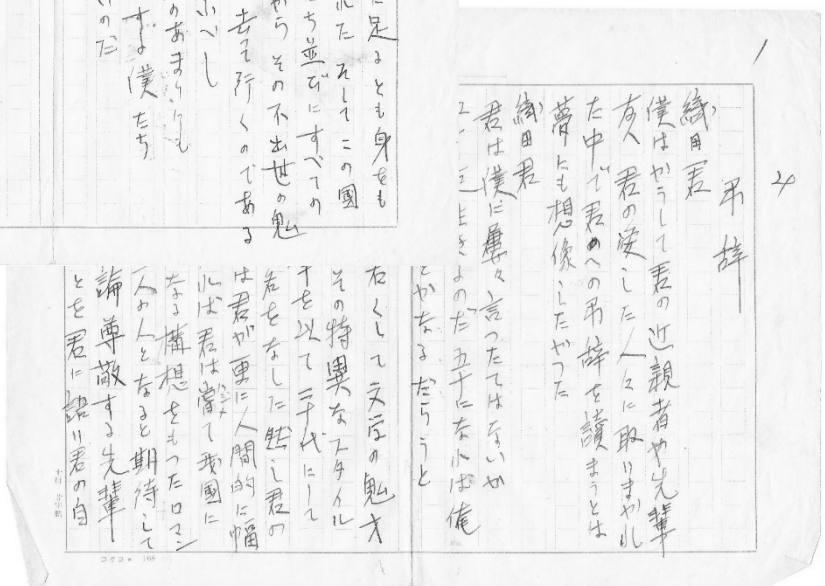 1
弔辞
織田君
僕はかうして君の近親者や先輩
友人 君の愛した人々に取りまかれ
た中で君への弔辞を讀まうとは
夢にも想像したやつた
織田君
君は僕に屡々言つたではないか
生きるのだ 五十になれば俺
とかなるだらうと
若くして文学の鬼才
その特異なスタイル
を以て二十代にして
名をなした 然し君の
は君が更に人間的に幅
れば君は嘗て我國に
なる構想をもつたロマン
人となると期待して
論尊敬する先輩
とを君に語り君の自
に足るとも身をも
れた そして この國
ち並びにすべての
から その不出世の鬼
去て行くのである
ふべし
のあまりにも
僕たち
のだ
コクヨ